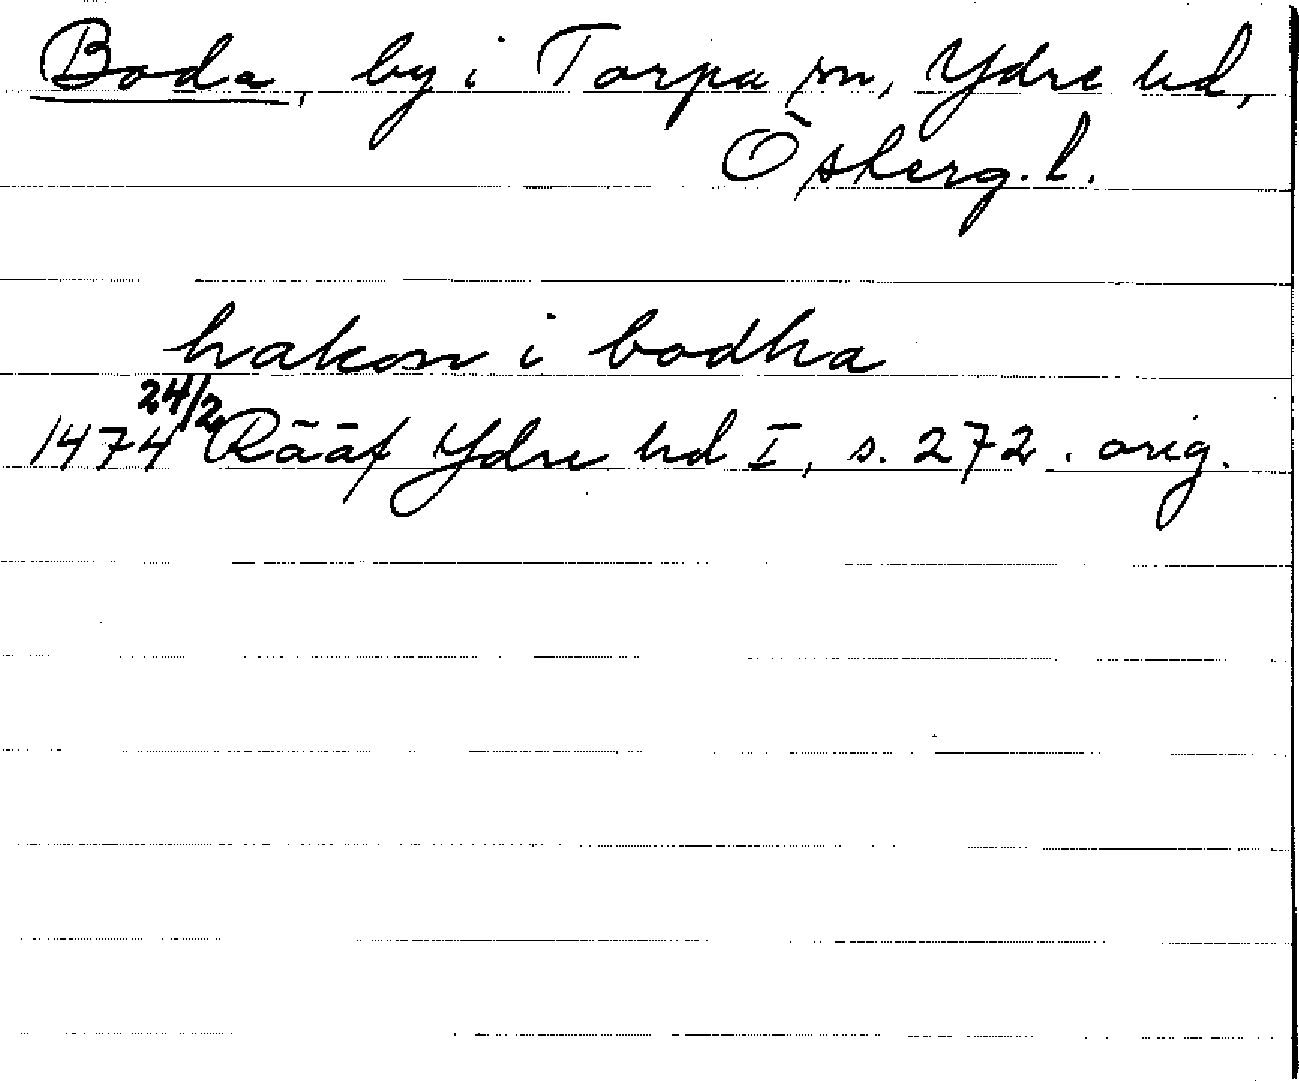 Boda, by i Torpa sn, Ydre hd,
Österg. l.
hakon i bodha
24/2
1474 Rääf Ydre hd I, s. 272. orig.